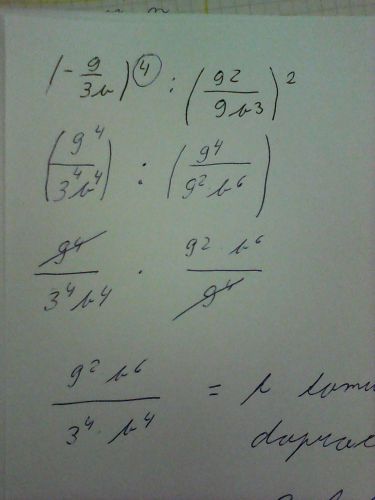 (-9/3b)^4 : (9^2/9b^3)^2
(9^4/3^4b^4) : (9^4/9^2b^6)
9^4/3^4b^4 · 9^2·b^6/9^4
9^2 b^6/3^4·b^4 =